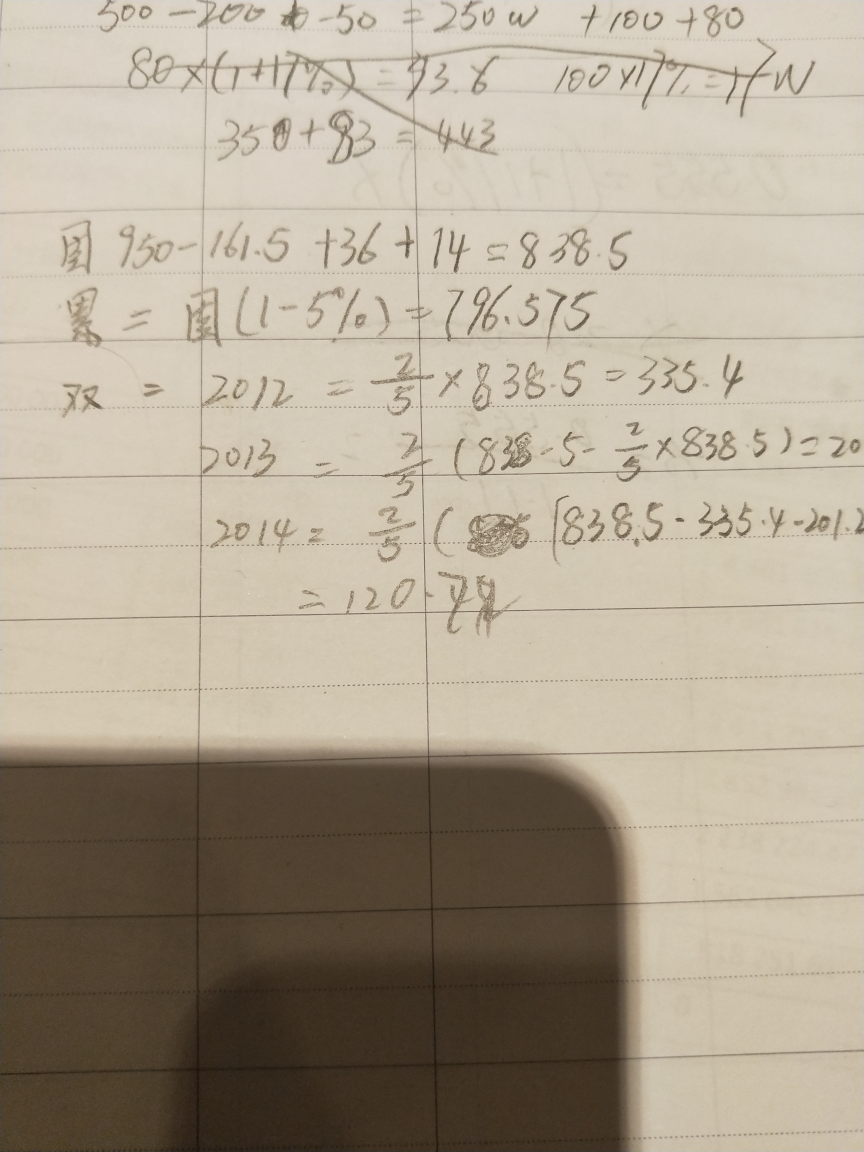 500-200-50=250W +100+80
80×(1+17%)=93.6 100×17%=17W
350+93=443
固 950-161.5+36+14=838.5
累=固(1-5%)=796.575
双=2012=2/5×838.5=335.4
2013=2/5(838-5-2/5×838.5)=20
2014=2/5([838.5-335.4-201.2
=120.